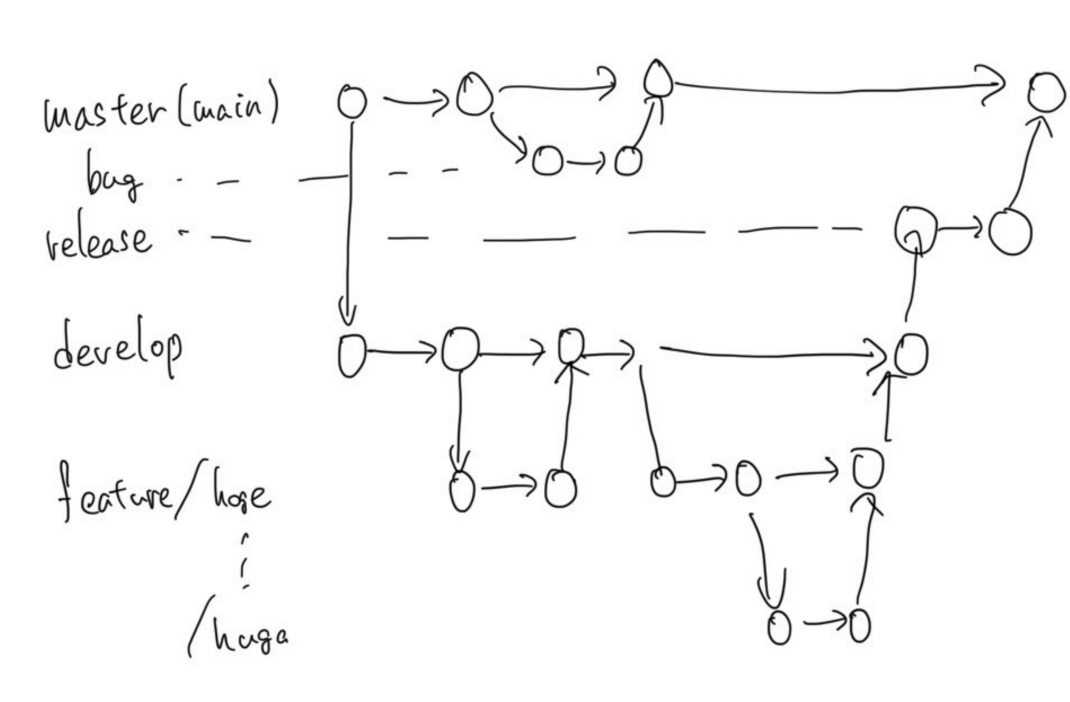 master(main)
bug
release
develop
feature/hoge
/huga